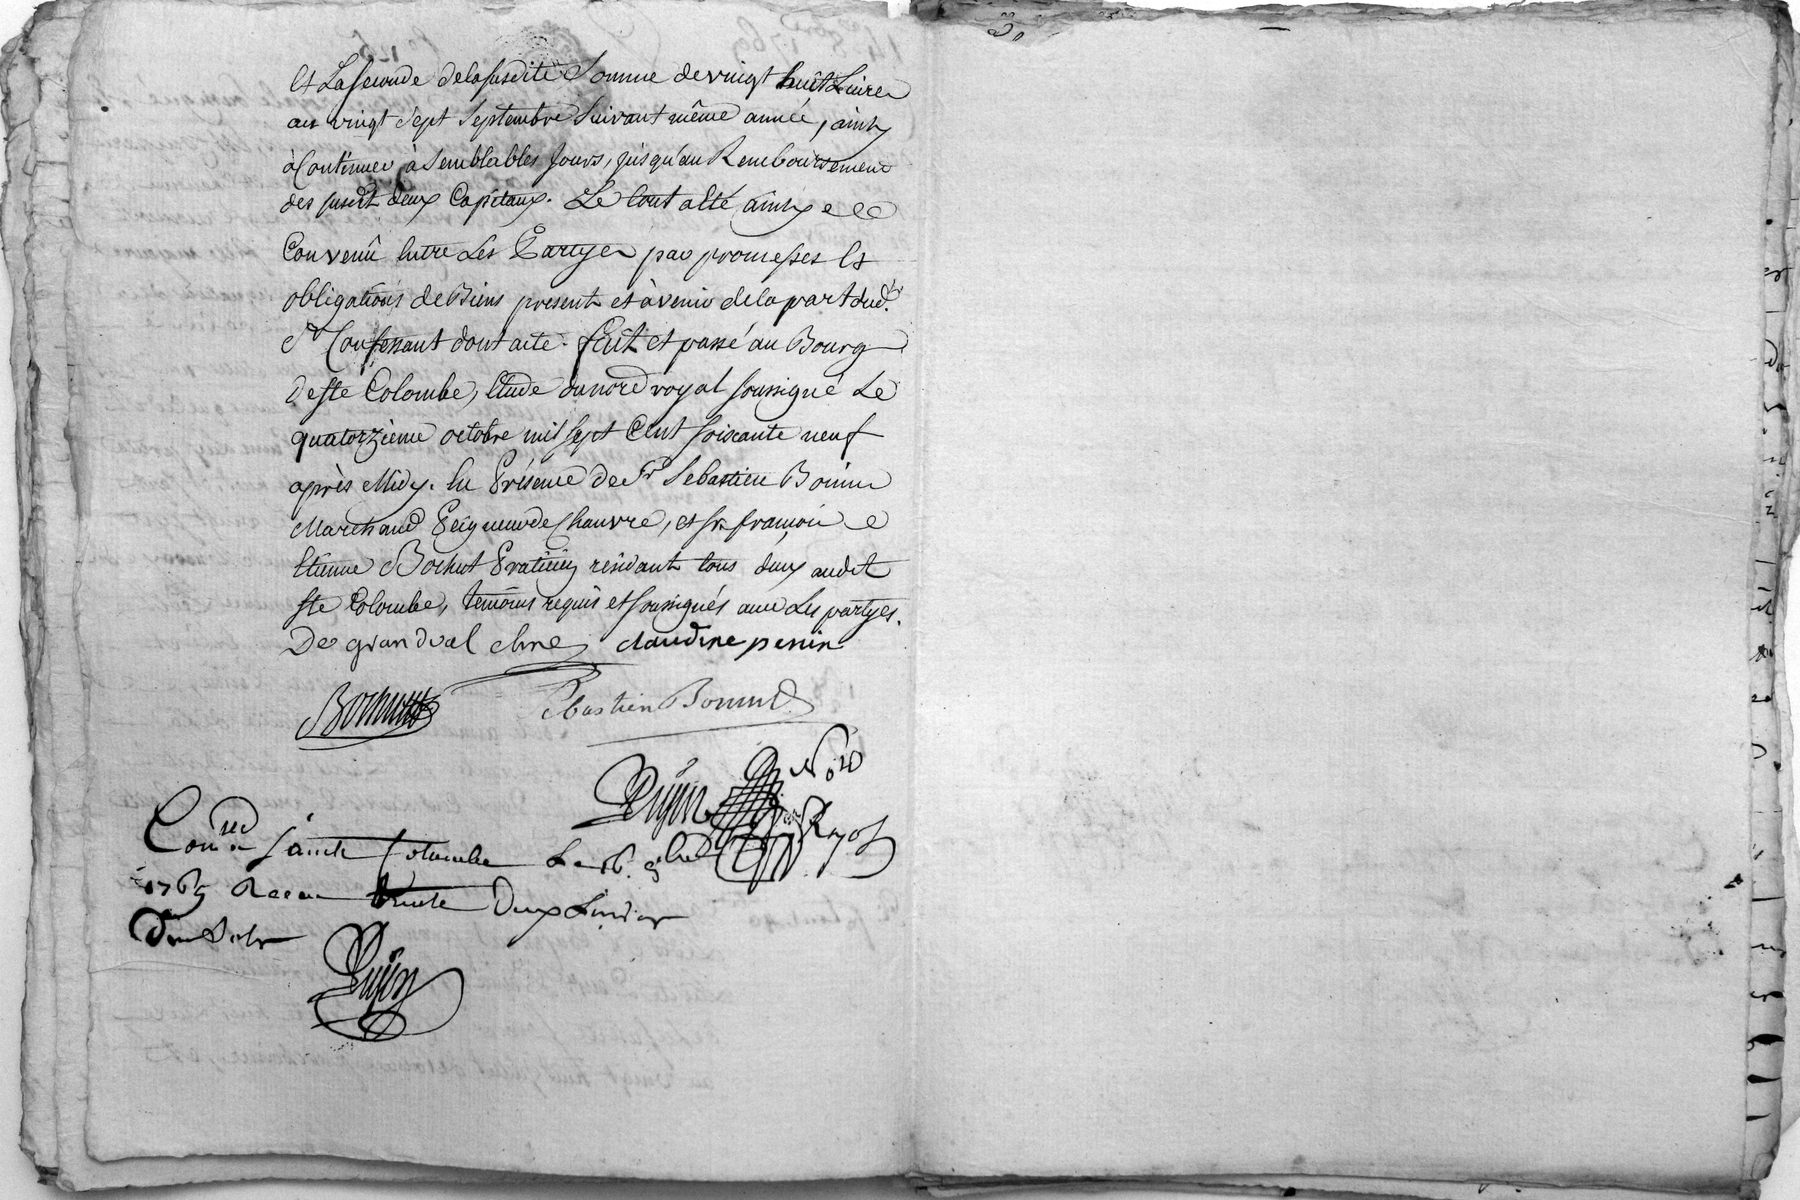 et La seconde de la susdite Somme de vingt huit Livres
au vingt Sept Septembre Suivant même année, ainsy
à Continuer à Semblables Jours, jusqu'au Remboursement
des susdt deux Capitaux. Le tout a été ainsy
Convenû Entre Les Partyes par promesses et
obligations de Biens present et à venir de la part dud.
Sr Confessant dont acte. fait et passé au Bourg
de Ste Colombe, Etude du nore royal soussigné Le
quatorzième octobre mil sept Cent soixante neuf
après Midy. En Présence de Sr Sebastien Bonin
Marchand Peigneur de Chanvre, et Sr françois
Etienne Bochut Praticien résidant tous deux audit
Ste Colombe, temoins requis et soussignés avec Les partyes.
De grandval claudine perrin
Bochut Sebastien Bonin
Pujin Nore
Royal
Conlé à Sainte Colombe Le 16. 8bre
1769 Receu trente Deux Livres
Pujin